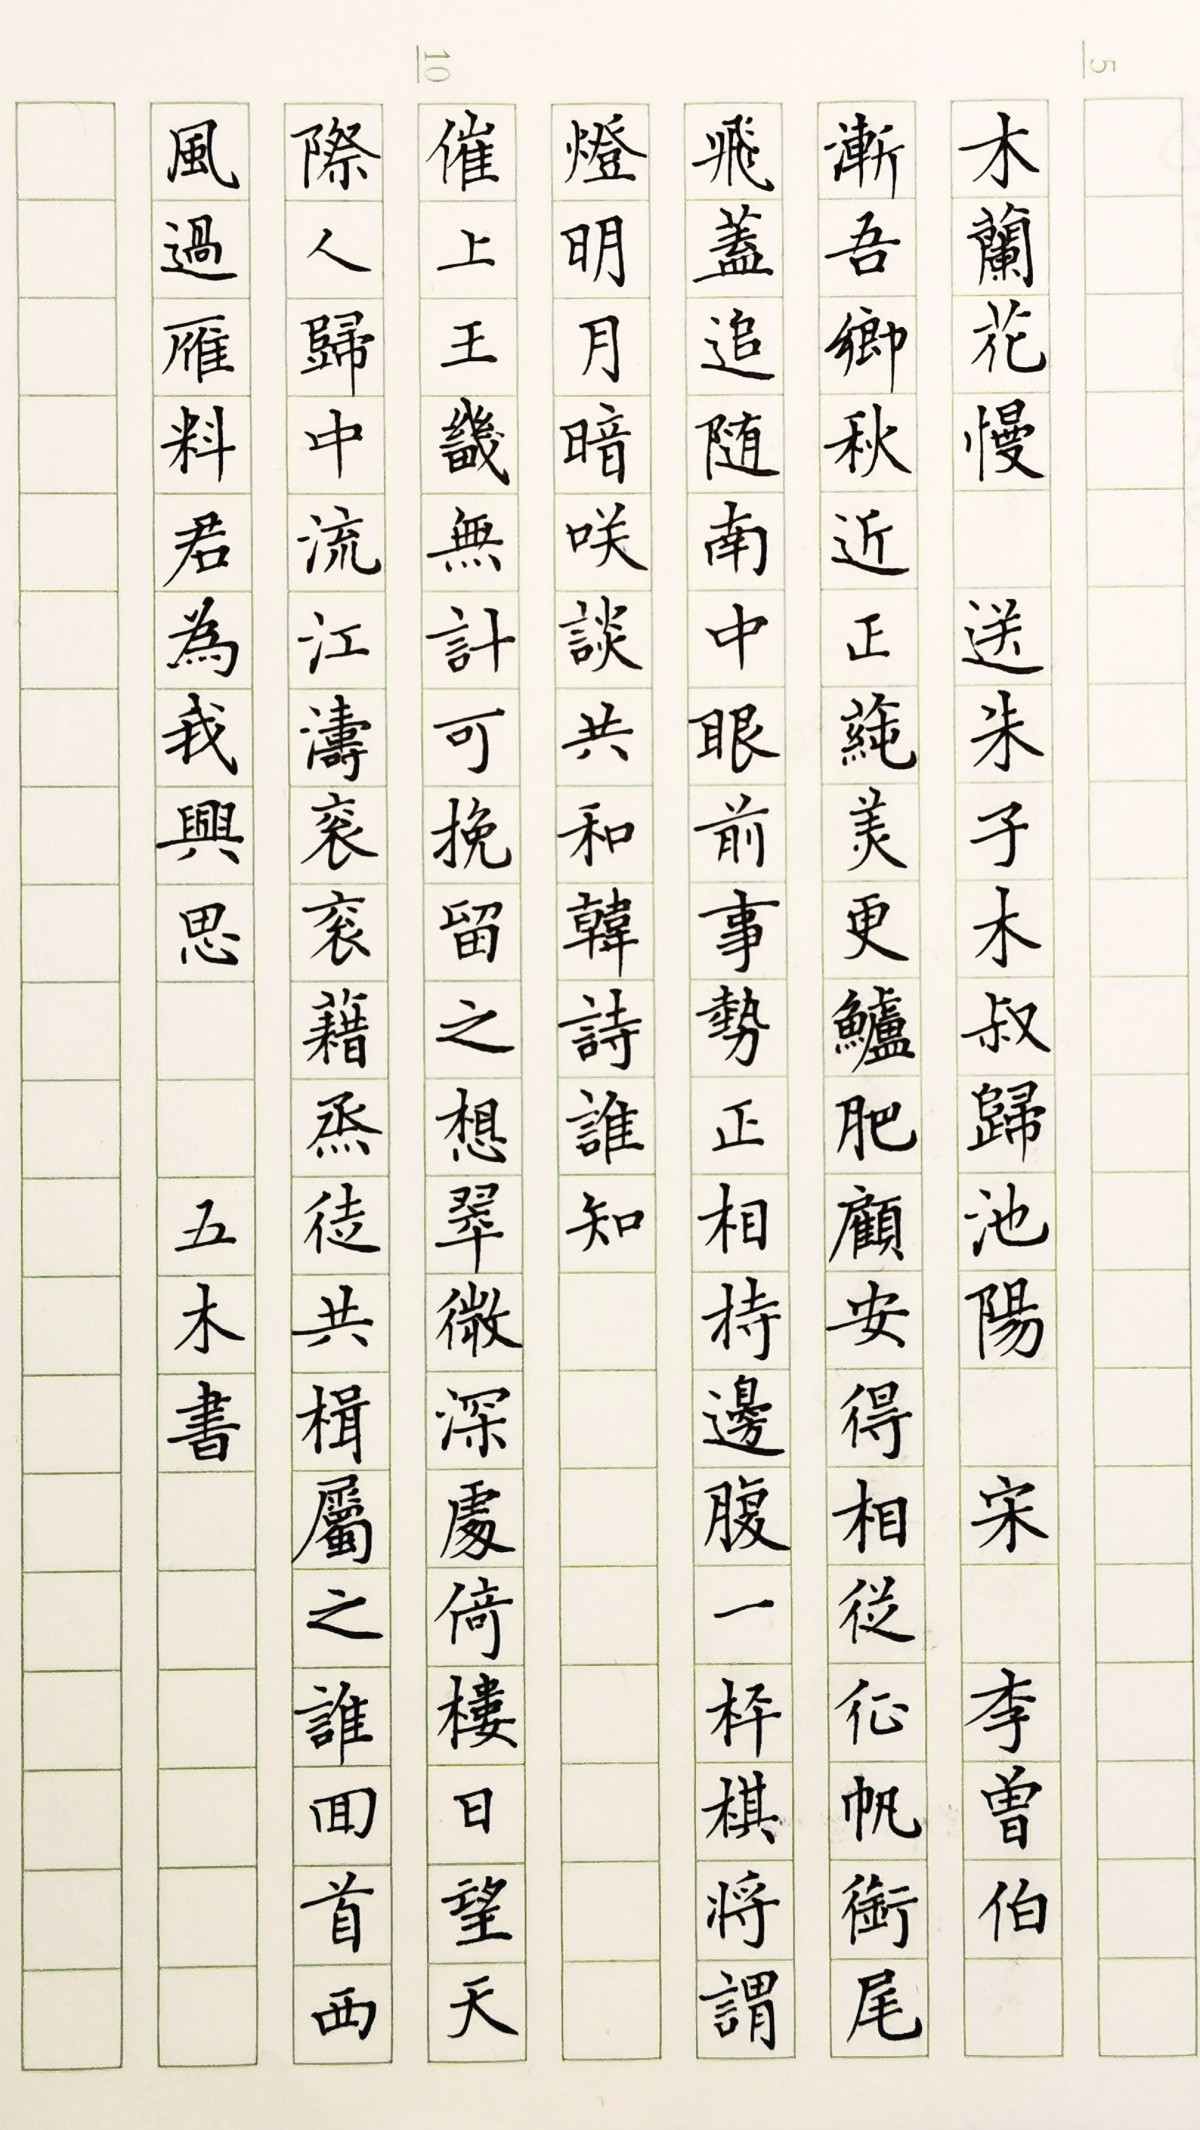 5
10
木蘭花慢 送朱子木叔歸池陽 宋 李曾伯
漸吾鄉秋近正蒓美更鱸肥顧安得相從征帆銜尾
飛蓋追随南中眼前事勢正相持邊腹一枰棋将謂
燈明月暗咲談共和韓詩誰知
催上王畿無計可挽留之想翠微深處倚樓日望天
際人歸中流江濤衮衮藉烝徒共楫屬之誰回首西
風過雁料君為我興思 五木書